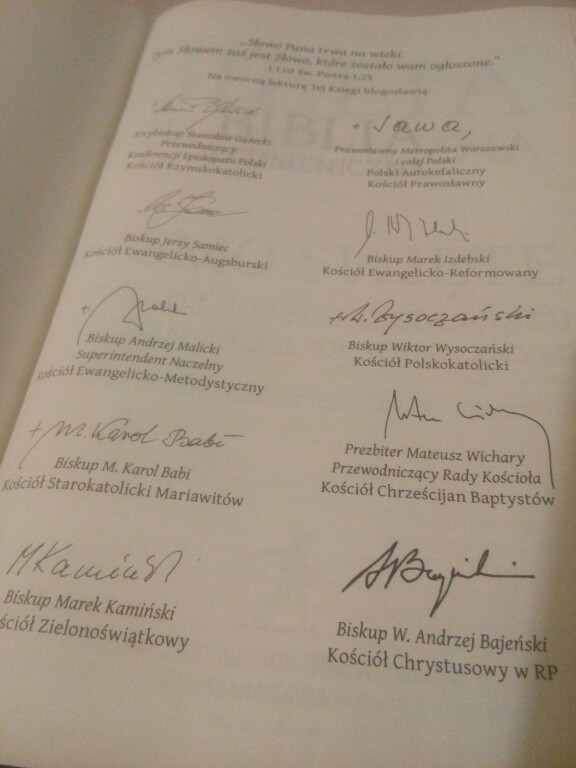 „Słowo Pana trwa na wieki.
Tym Słowem zaś jest Słowo, które zostało wam ogłoszone.”
1 List św. Piotra 1,25
Na owocną lekturę Tej Księgi błogosławią:
Arcybiskup Stanisław Gądecki
Przewodniczący
Konferencji Episkopatu Polski
Kościół Rzymskokatolicki
+ Sawa,
Prawosławny Metropolita Warszawski
i całej Polski
Polski Autokefaliczny
Kościół Prawosławny
Biskup Jerzy Samiec
Kościół Ewangelicko-Augsburski
Biskup Marek Izdebski
Kościół Ewangelicko-Reformowany
Biskup Andrzej Malicki
Superintendent Naczelny
Kościół Ewangelicko-Metodystyczny
+ W. Wysoczański
Biskup Wiktor Wysoczański
Kościół Polskokatolicki
+ M. Karol Babi
Biskup M. Karol Babi
Kościół Starokatolicki Mariawitów
Prezbiter Mateusz Wichary
Przewodniczący Rady Kościoła
Kościół Chrześcijan Baptystów
M Kamiński
Biskup Marek Kamiński
ściół Zielonoświątkowy
Biskup W. Andrzej Bajeński
Kościół Chrystusowy w RP